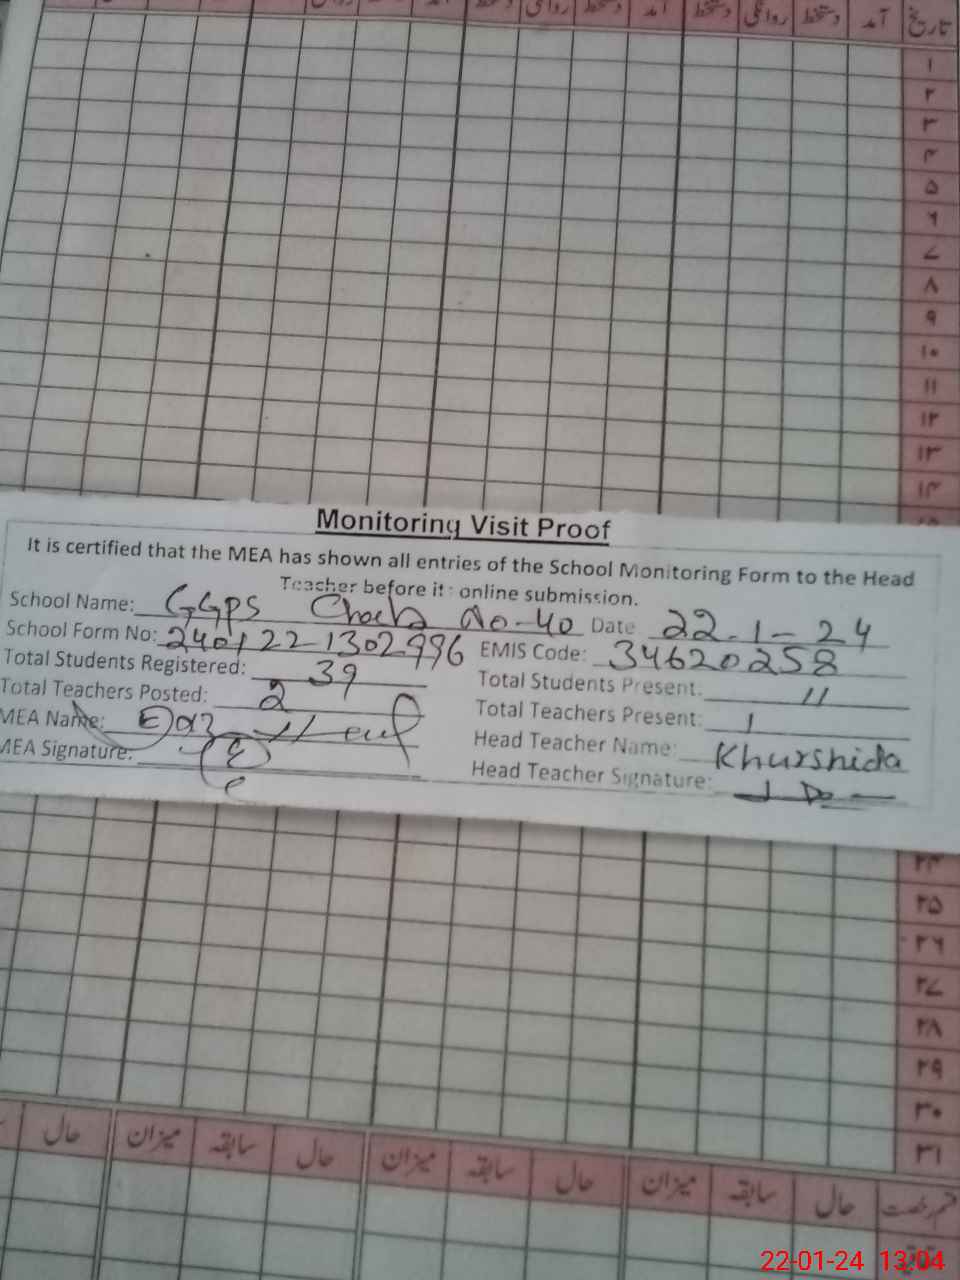 تاریخ آمد دستخط روانگی دستخط آمد دستخط روانگی دستخط
۱
۲
۳
۴
۵
۶
۷
۸
۹
۱۰
۱۱
۱۲
۱۳
۱۴
Monitoring Visit Proof
It is certified that the MEA has shown all entries of the School Monitoring Form to the Head
Teacher before its online submission.
School Name: GGPS Chack No-40 Date 22-1-24
School Form No: 240122-1302996 EMIS Code: 34620258
Total Students Registered: 39 Total Students Present: 11
Total Teachers Posted: 2 Total Teachers Present: 1
MEA Name: Head Teacher Name: Khurshida
MEA Signature: Head Teacher Signature:
۲۴
۲۵
۲۶
۲۷
۲۸
۲۹
۳۰
۳۱
قسم رخصت حال سابقہ میزان حال سابقہ میزان حال سابقہ میزان حال
22-01-24 13:04